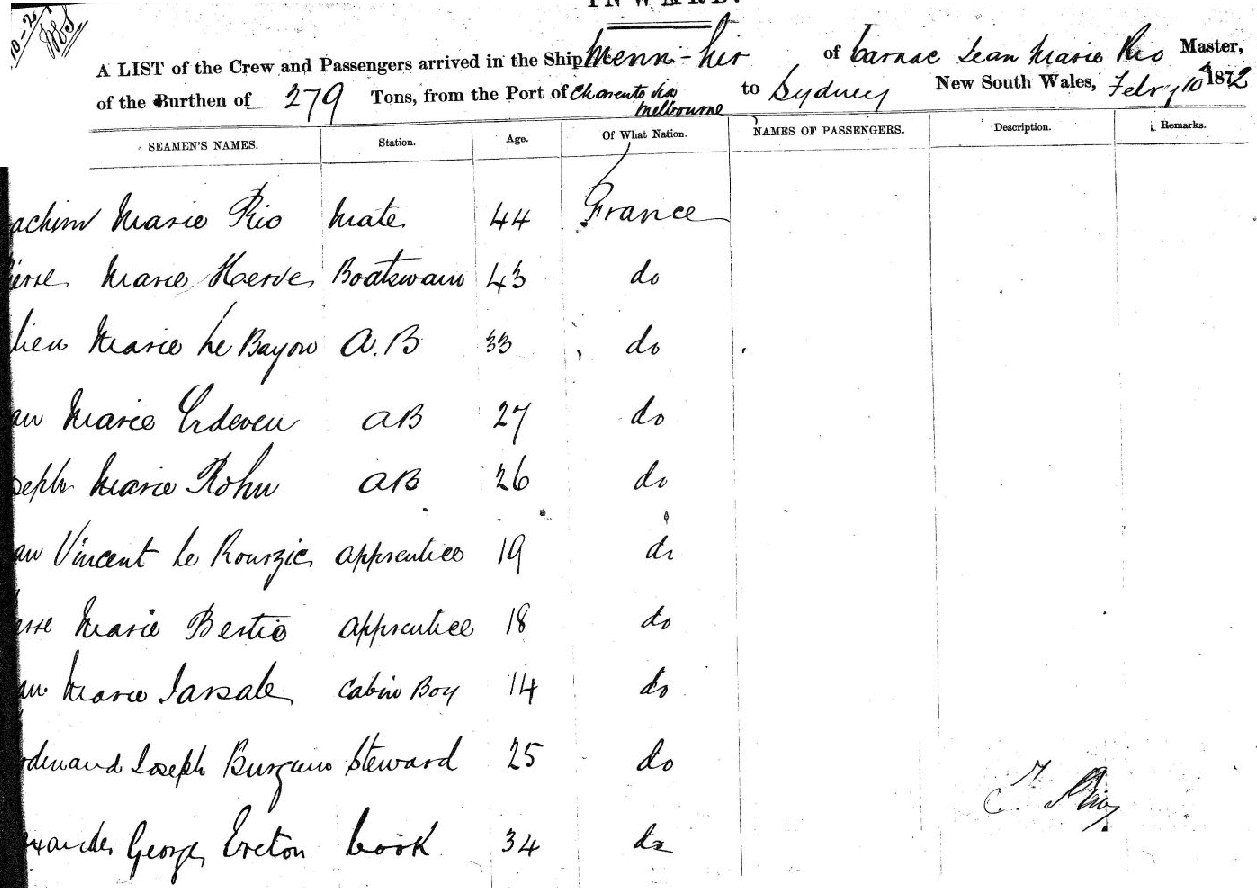 INWARD.
A LIST of the Crew and Passengers arrived in the Ship Menn-hir of Carnac Jean Marie Rio Master,
of the Burthen of 279 Tons, from the Port of Charente via Melbourne to Sydney New South Wales, Febry 10 1872
SEAMEN'S NAMES. Station. Age. Of What Nation. NAMES OF PASSENGERS. Description. Remarks.
achim Marie Rio Mate 44 France
ierre Marie Herve Boatswain 43 do
lien Marie Le Bayon A.B 33 do
an Marie Erdeven AB 27 do
oseph Marie Rohu AB 26 do
an Vincent Le Rouzic apprentice 19 do
erre Marie Bertio apprentice 18 do
an Marie Cabin Boy 14 do
dinand Joseph Steward 25 do
exander George Ereton Cook 34 do